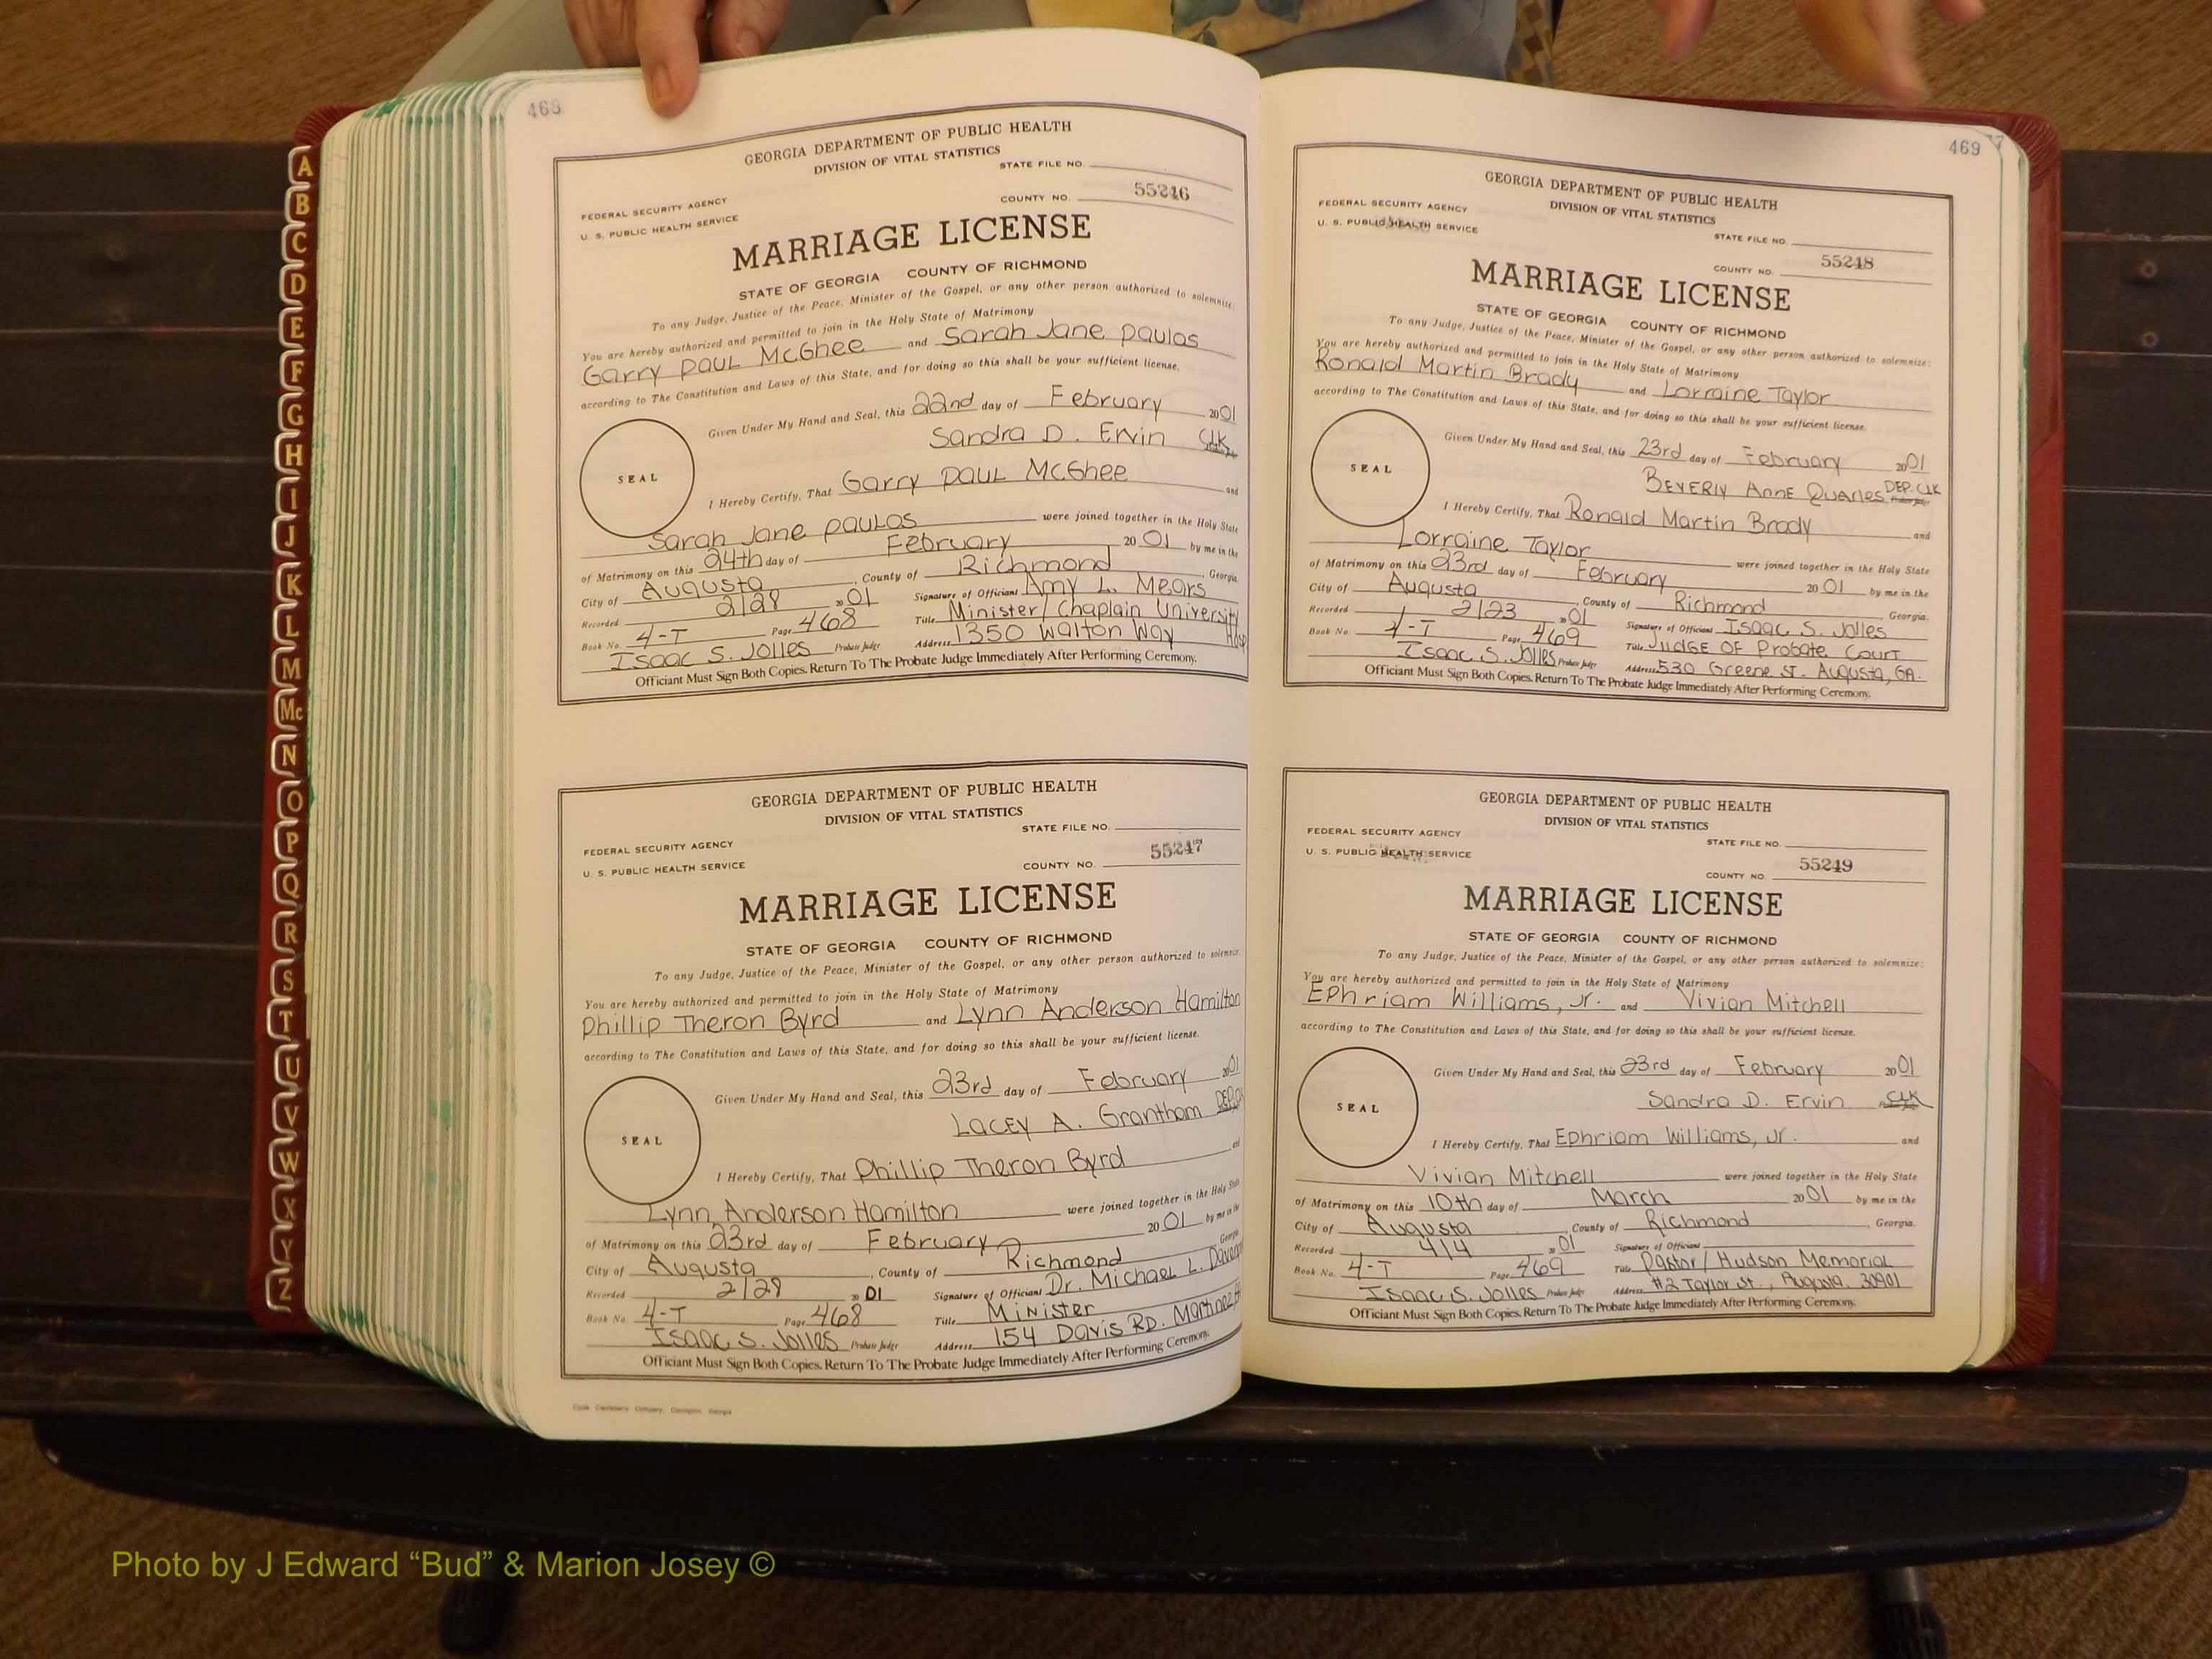 A
B
C
D
E
F
G
H
I
J
K
L
M
Mc
N
O
P
Q
R
S
T
U
V
W
X
Y
Z
468
GEORGIA DEPARTMENT OF PUBLIC HEALTH
DIVISION OF VITAL STATISTICS
STATE FILE NO.
FEDERAL SECURITY AGENCY
COUNTY NO. 55246
U. S. PUBLIC HEALTH SERVICE
MARRIAGE LICENSE
STATE OF GEORGIA COUNTY OF RICHMOND
To any Judge, Justice of the Peace, Minister of the Gospel, or any other person authorized to solemnize:
You are hereby authorized and permitted to join in the Holy State of Matrimony
Garry Paul McGhee and Sarah Jane Paulos
according to The Constitution and Laws of this State, and for doing so this shall be your sufficient license.
Given Under My Hand and Seal, this 22nd day of February 2001
Sandra D. Ervin CLK
SEAL
I Hereby Certify, That Garry Paul McGhee and
Sarah Jane Paulos were joined together in the Holy State
of Matrimony on this 24th day of February 2001 by me in the
City of Augusta, County of Richmond, Georgia.
Recorded 2/28 2001 Signature of Officiant Amy L. Mears
Book No. 4-T Page 468 Title Minister/Chaplain University Hosp
Isaac S. Jolles Probate Judge Address 1350 Walton Way
Officiant Must Sign Both Copies. Return To The Probate Judge Immediately After Performing Ceremony.
GEORGIA DEPARTMENT OF PUBLIC HEALTH
DIVISION OF VITAL STATISTICS
STATE FILE NO.
FEDERAL SECURITY AGENCY
COUNTY NO. 55247
U. S. PUBLIC HEALTH SERVICE
MARRIAGE LICENSE
STATE OF GEORGIA COUNTY OF RICHMOND
To any Judge, Justice of the Peace, Minister of the Gospel, or any other person authorized to solemnize:
You are hereby authorized and permitted to join in the Holy State of Matrimony
Phillip Theron Byrd and Lynn Anderson Hamilton
according to The Constitution and Laws of this State, and for doing so this shall be your sufficient license.
Given Under My Hand and Seal, this 23rd day of February 2001
Lacey A. Grantham DEP.
SEAL
I Hereby Certify, That Phillip Theron Byrd and
Lynn Anderson Hamilton were joined together in the Holy State
of Matrimony on this 23rd day of February 2001 by me in the
City of Augusta, County of Richmond Georgia
Recorded 2/28 2001 Signature of Officiant Dr. Michael L.
Book No. 4-T Page 468 Title Minister
Isaac S. Jolles Probate Judge Address 154 Davis Rd. Martinez
Officiant Must Sign Both Copies. Return To The Probate Judge Immediately After Performing Ceremony.
469
GEORGIA DEPARTMENT OF PUBLIC HEALTH
DIVISION OF VITAL STATISTICS
FEDERAL SECURITY AGENCY
STATE FILE NO.
U. S. PUBLIC HEALTH SERVICE
COUNTY NO. 55248
MARRIAGE LICENSE
STATE OF GEORGIA COUNTY OF RICHMOND
To any Judge, Justice of the Peace, Minister of the Gospel, or any other person authorized to solemnize:
You are hereby authorized and permitted to join in the Holy State of Matrimony
Ronald Martin Brady and Lorraine Taylor
according to The Constitution and Laws of this State, and for doing so this shall be your sufficient license.
Given Under My Hand and Seal, this 23rd day of February 2001
Beverly Anne Quarles DEP. CLK
SEAL
I Hereby Certify, That Ronald Martin Brady and
Lorraine Taylor were joined together in the Holy State
of Matrimony on this 23rd day of February 2001 by me in the
City of Augusta, County of Richmond Georgia.
Recorded 2/23 2001 Signature of Officiant Isaac S. Jolles
Book No. 4-T Page 469 Title Judge of Probate Court
Isaac S. Jolles Probate Judge Address 530 Greene St. Augusta, GA.
Officiant Must Sign Both Copies. Return To The Probate Judge Immediately After Performing Ceremony.
GEORGIA DEPARTMENT OF PUBLIC HEALTH
DIVISION OF VITAL STATISTICS
FEDERAL SECURITY AGENCY
STATE FILE NO.
U. S. PUBLIC HEALTH SERVICE
COUNTY NO. 55249
MARRIAGE LICENSE
STATE OF GEORGIA COUNTY OF RICHMOND
To any Judge, Justice of the Peace, Minister of the Gospel, or any other person authorized to solemnize:
You are hereby authorized and permitted to join in the Holy State of Matrimony
Ephriam Williams, Jr. and Vivian Mitchell
according to The Constitution and Laws of this State, and for doing so this shall be your sufficient license.
Given Under My Hand and Seal, this 23rd day of February 2001
Sandra D. Ervin CLK
SEAL
I Hereby Certify, That Ephriam Williams, Jr. and
Vivian Mitchell were joined together in the Holy State
of Matrimony on this 10th day of March 2001 by me in the
City of Augusta, County of Richmond, Georgia.
Recorded 4/4 2001 Signature of Officiant
Book No. 4-T Page 469 Title Pastor/Hudson Memorial
Isaac S. Jolles Probate Judge Address #2 Taylor St., Augusta, 30901
Officiant Must Sign Both Copies. Return To The Probate Judge Immediately After Performing Ceremony.
Photo by J Edward “Bud” & Marion Josey ©